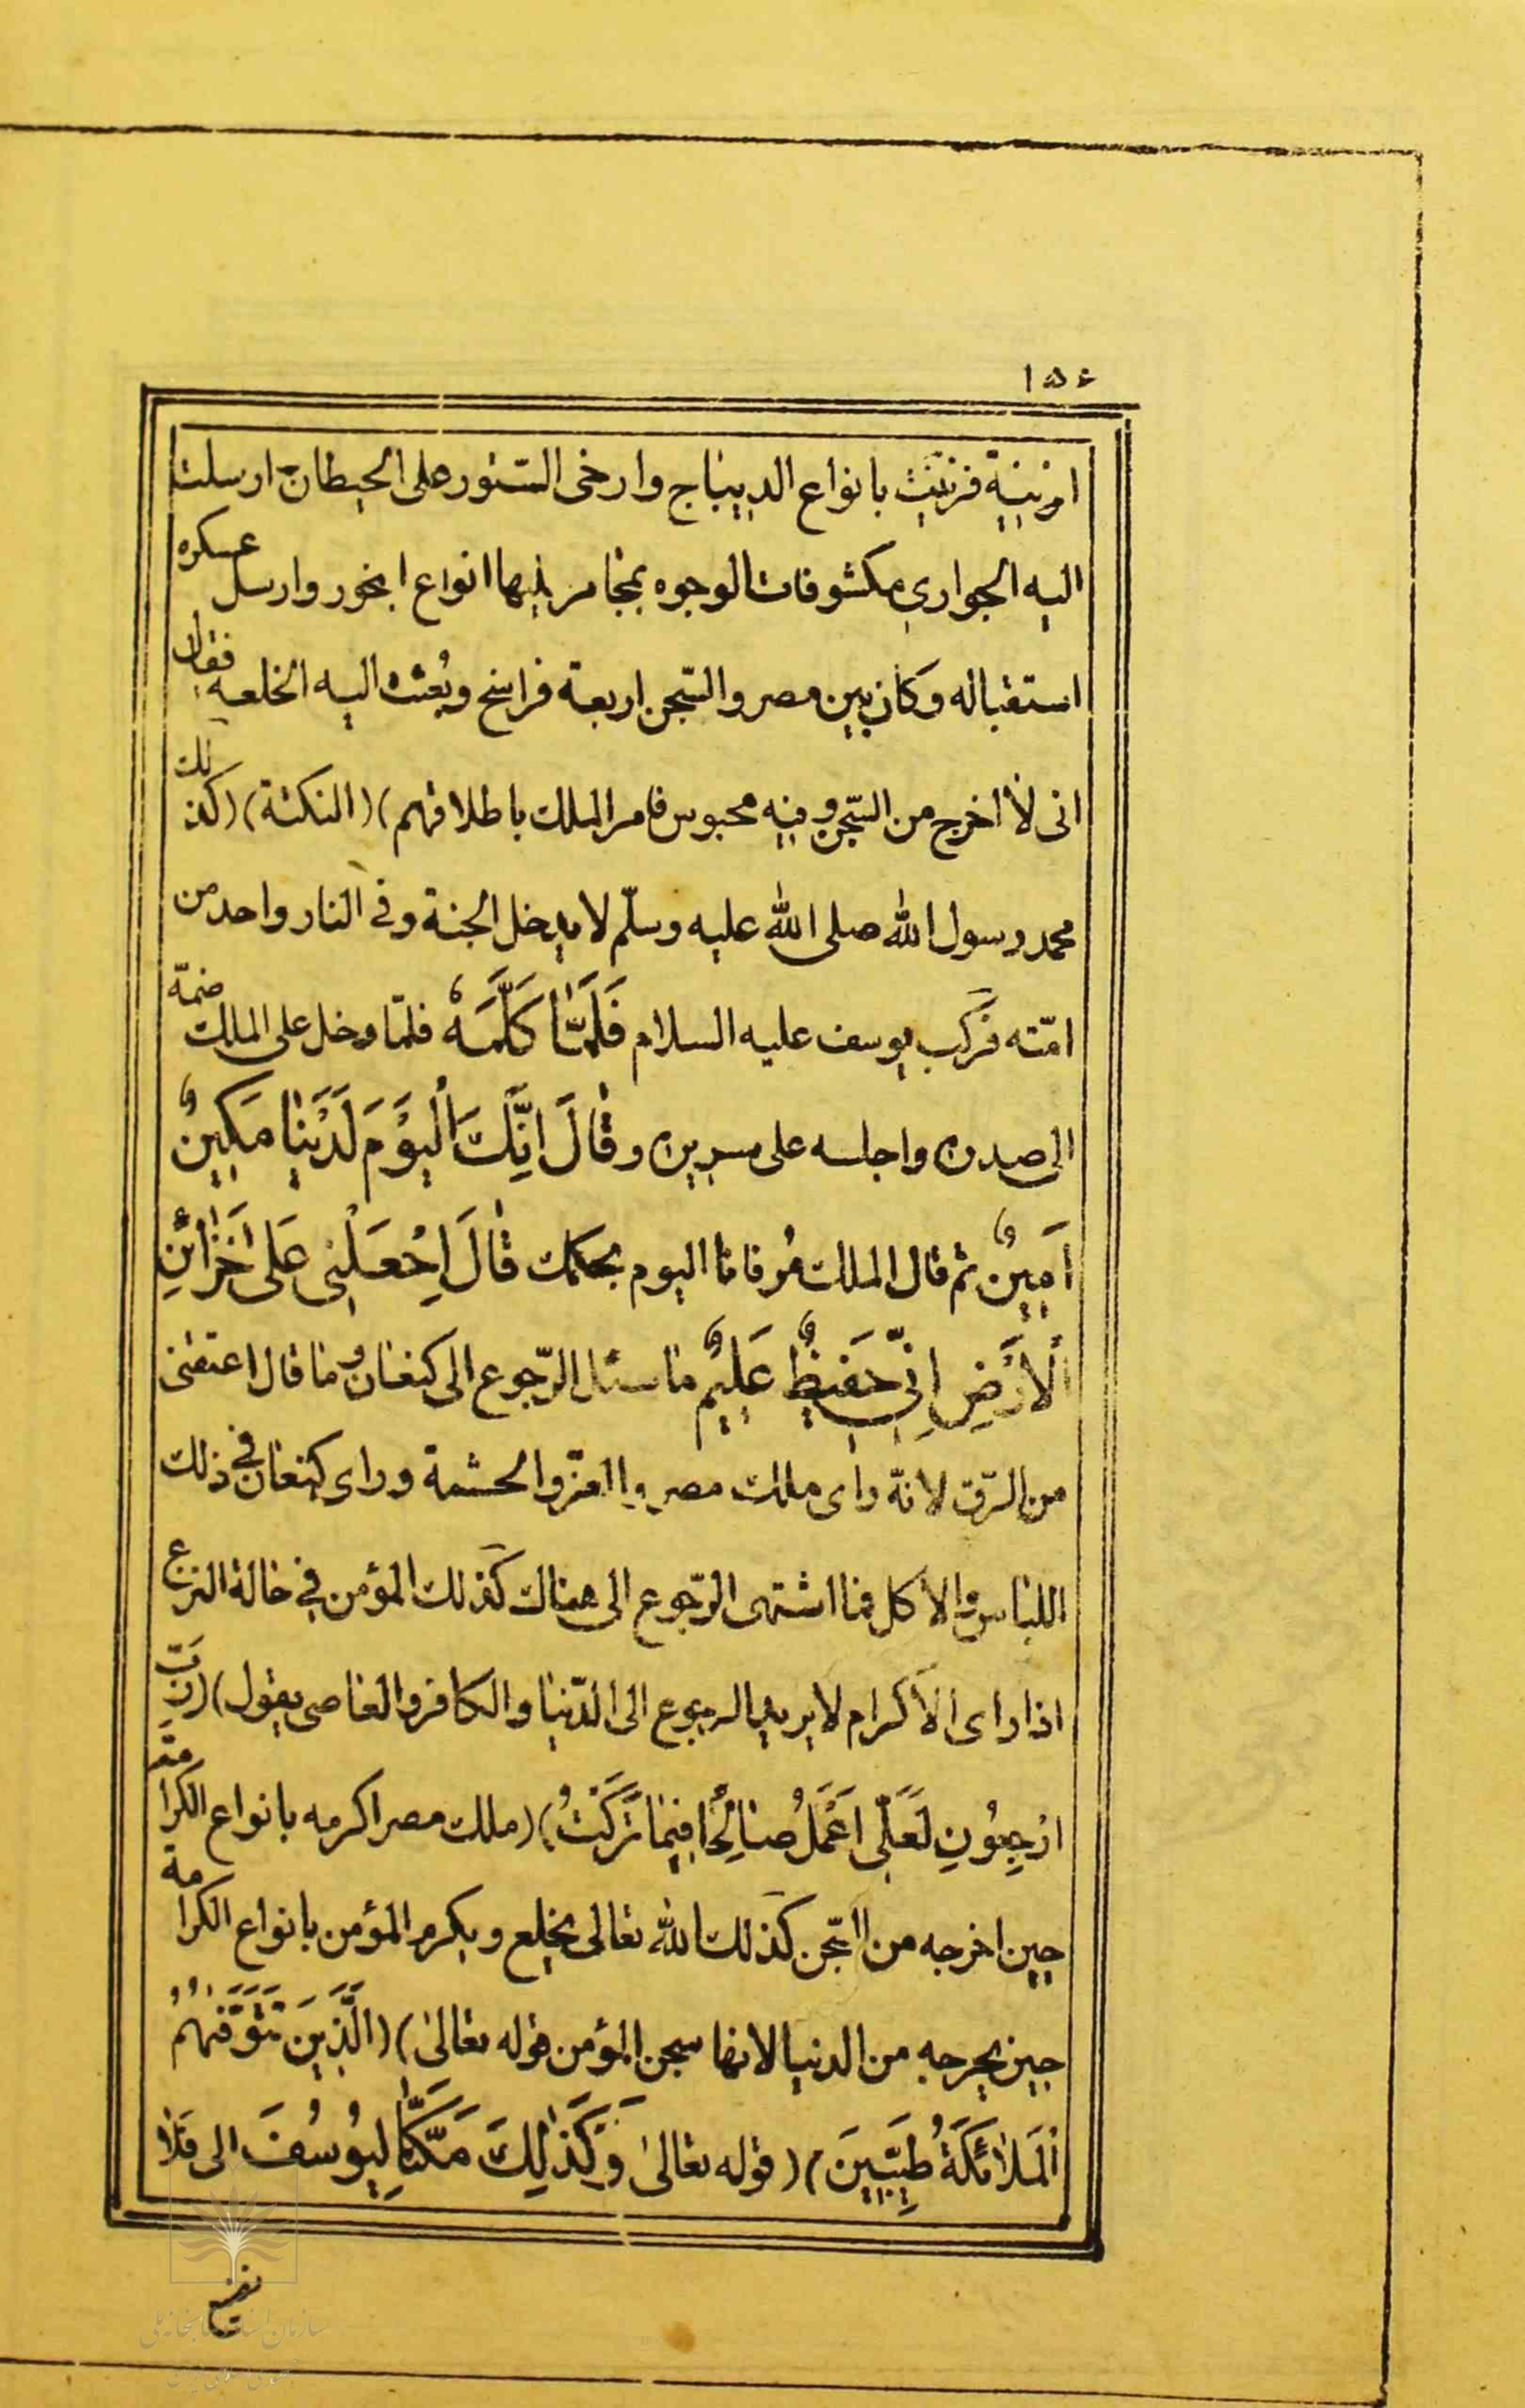 ۱۵۶
ان زينة فزينت بانواع الديباج وارخى الستور على الحيطان ارسلت
اليه الجوارى مكشوفات الوجوه بمجامر فيها انواع البخور وارسل عسكره
استقباله وكان بين مصر والسّجن اربعة فراسخ وبُعثت اليه الخلعه فقال
انى لا اخرج من السّجن وفيه محبوس فامر الملك باطلاقهم) (النكتة) (كذلك
محمد رسول الله صلى الله عليه وسلّم لا يدخل الجنة وفى النار واحد من
امّته فركب يوسف عليه السلام فَلَمَّا كَلَّمَهُ فلمّا دخل على الملك ضمّه
الى صدره واجلسه على سريره و قَالَ اِنَّكَ الْيَوْمَ لَدَيْنَا مَكِينٌ
اَمِينٌ ثم قال الملك مُر فانا اليوم بحكمك قَالَ اِجْعَلْنِى عَلَى خَزَائِنِ
الْاَرْضِ اِنِّى حَفِيظٌ عَلِيمٌ ما سئل الرّجوع الى كنعان وما قال اعتقنى
من الرّق لانّه راى ملك مصر والعزّ والحشمة وراى كنعان فى ذلك
اللباس والاكل فما اشتهى الرّجوع الى هناك كذلك المؤمن فى حالة النزع
اذا راى الاكرام لا يريد الرجوع الى الدّنيا والكافر والعاصى يقول) (رَبِّ
ارْجِعُونِ لَعَلِّى اَعْمَلُ صَالِحًا فِيمَا تَرَكْتُ) (ملك مصر اكرمه بانواع الكرامة
حين اخرجه من السّجن كذلك الله تعالى يخلع ويكرم المؤمن بانواع الكرامة
حين يخرجه من الدنيا لانها سجن المؤمن قوله تعالى) (الَّذِينَ تَتَوَفّٰهُمُ
الْمَلَائِكَةُ طَيِّبِينَ) (قوله تعالى وَكَذَلِكَ مَكَّنَّا لِيُوسُفَ الى قَلَا
نضيع